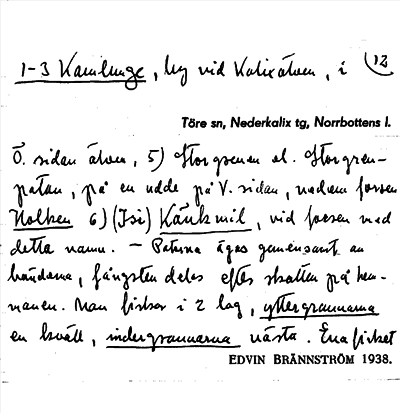 1-3 Kamlunge, by vid Kalixälven, i 12
Töre sn, Nederkalix tg, Norrbottens l.
Ö. sidan älven, 5) Storgrenen el. Storgren-
patan, på en udde på V. sidan, nedom forsen
Holken 6) (Isi) Känkmil, vid forsen med
detta namn. — Patorna ägas gemensamt av
bönderna, fångsten delas efter skatten på hem-
manen. Man fiskar i 2 lag, yttergrannarna
en kväll, indergrannarna nästa. Ena fisket
EDVIN BRÄNNSTRÖM 1938.